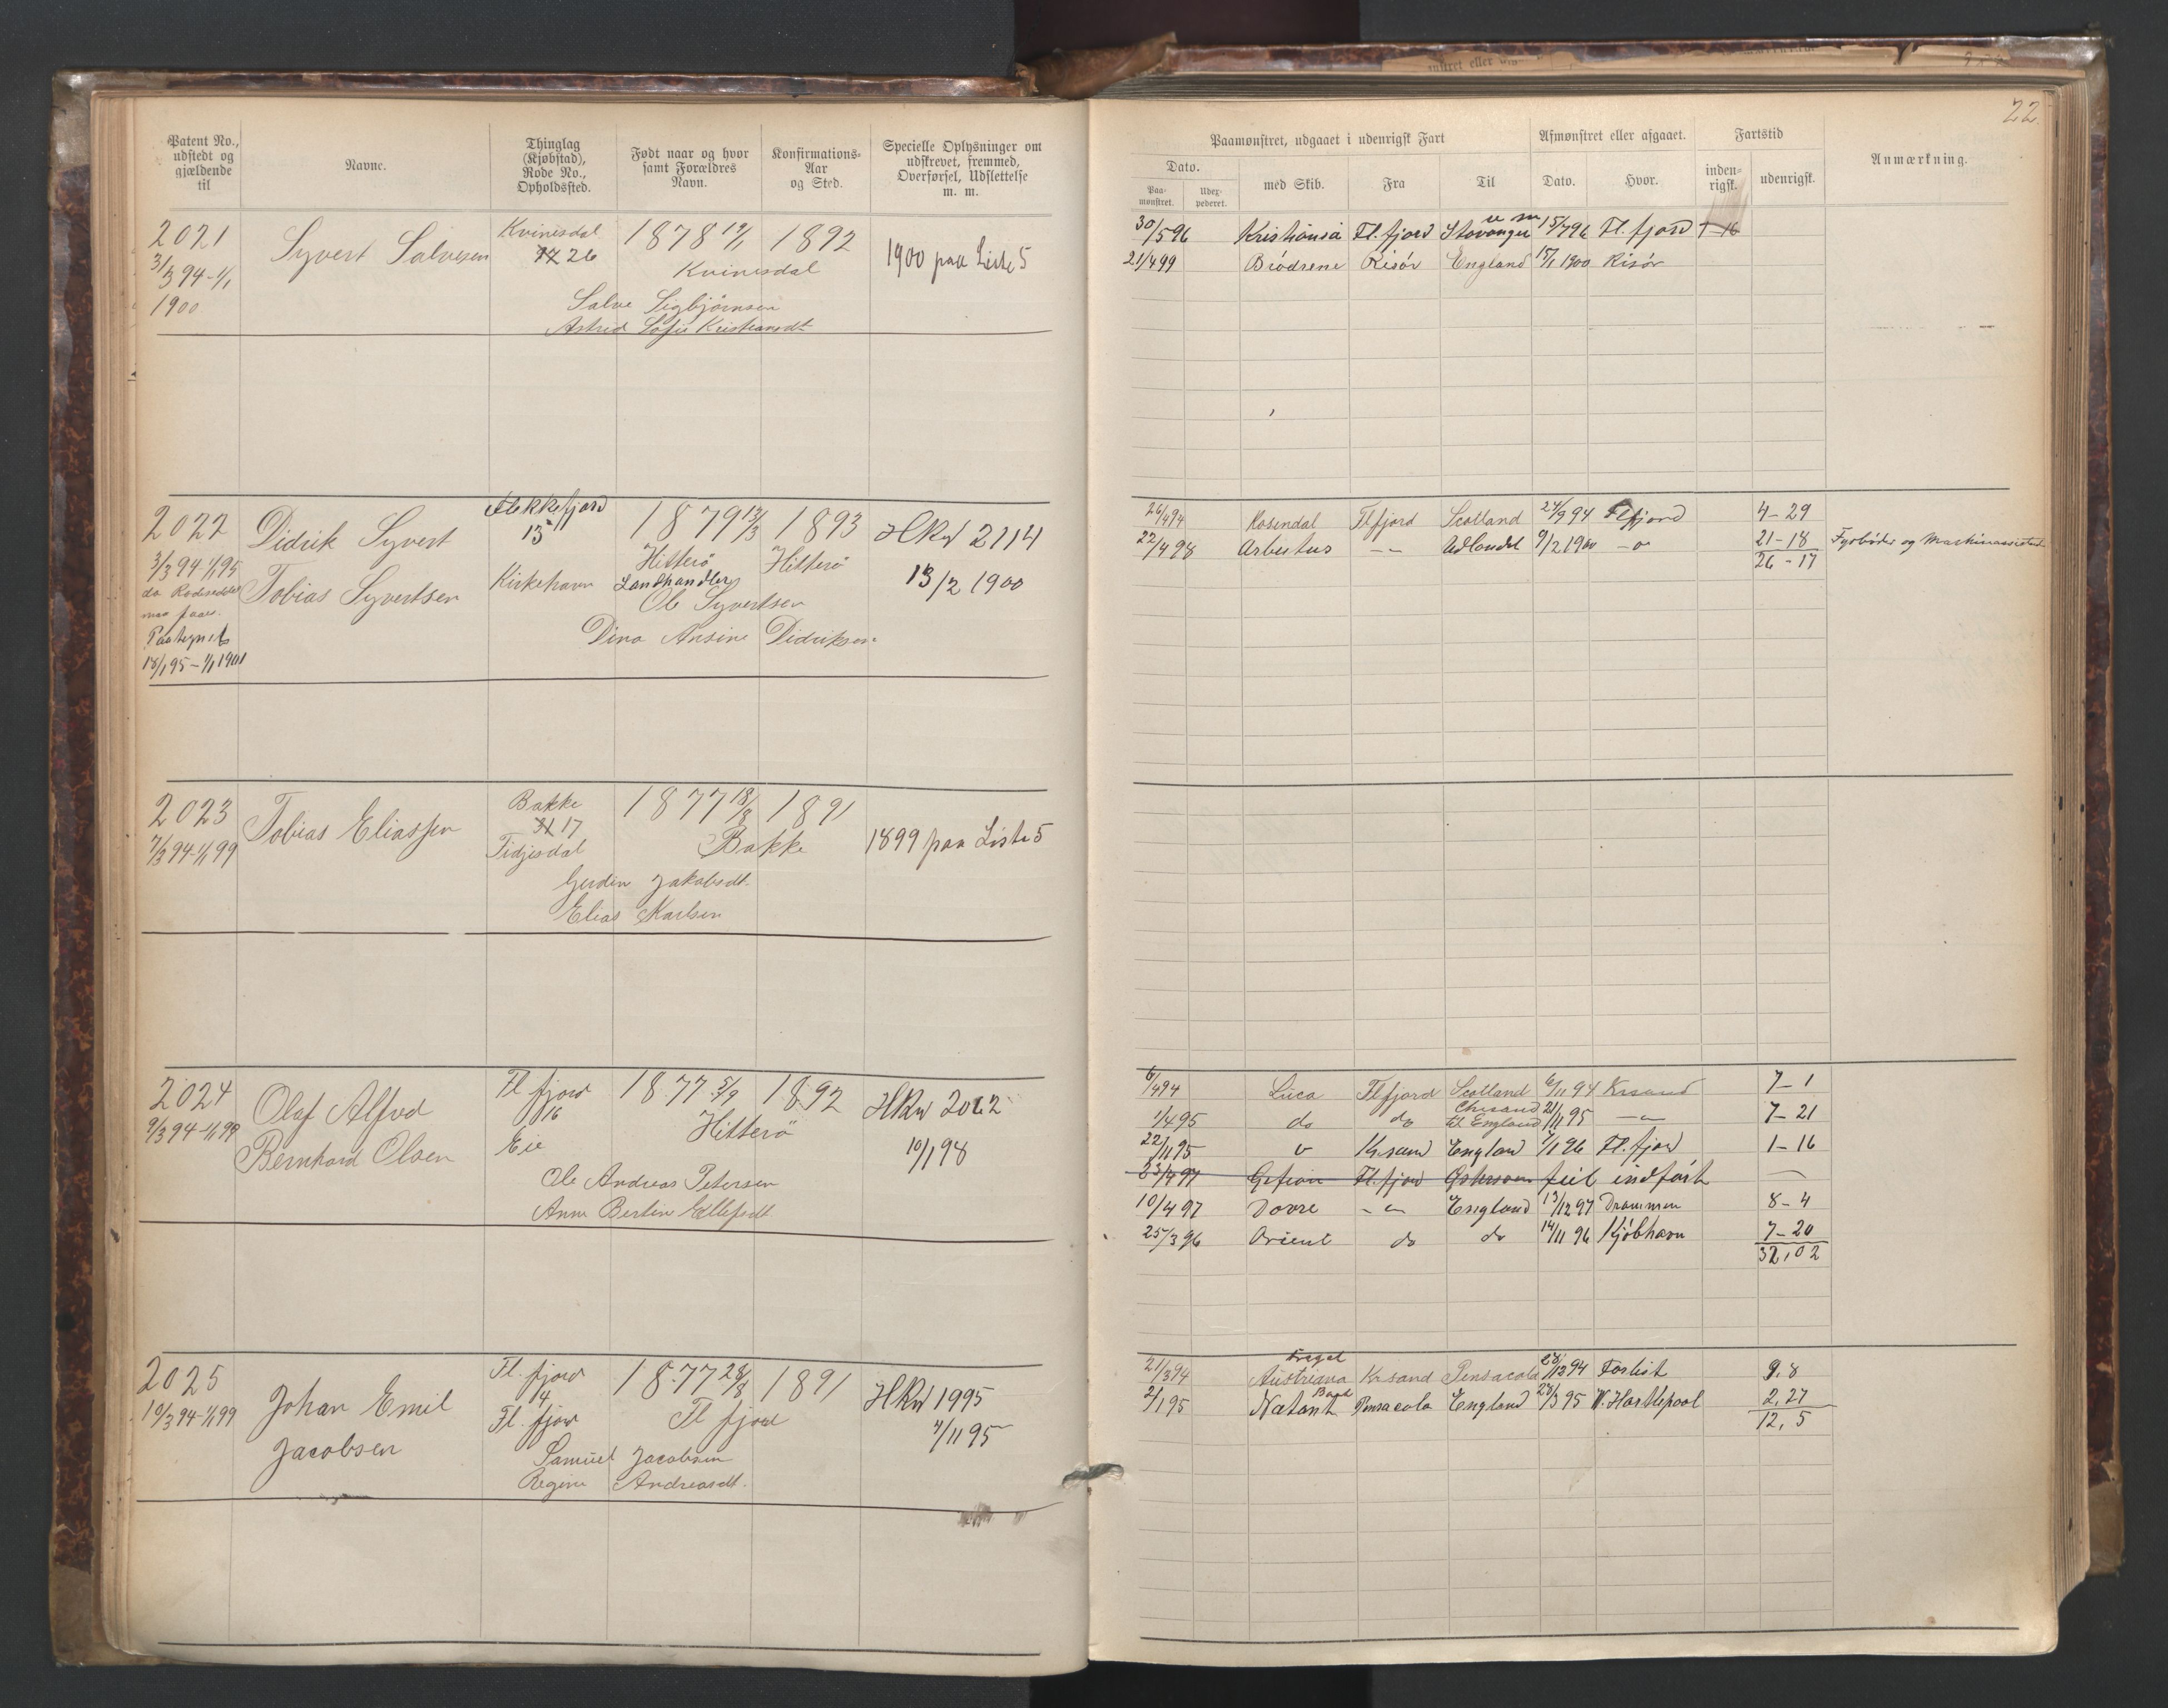 22
Patent No., udstedt og gjældende til
Navne.
Thinglag (Kjøbstad), Rode No., Opholdssted.
Født naar og hvor samt Forældres Navn.
Konfirmations-Aar og Sted.
Specielle Oplysninger om udskrevet, fremmed, Overførsel, Udslettelse m. m.
Paamønstret, udgaaet i udenrigsk Fart
Afmønstret eller afgaaet.
Fartstid
Anmærkning.
Dato.
Paa-mønstret.
med Skib.
Fra
Til
Dato.
Hvor.
inden-rigsk.
udenrigsk.
2021 Syvert Salvesen Kvinesdal 1878 19/1 1892
3/3 94-1/1 26 Kvinesdal 1900 paa Liste 5
1900 Salve Sigbjørnsen
Astrid Sofie Kristiansdt
30/5 96 Kristiania Fl. fjord Stavanger 15/7 96 Fl. fjord
21/4 99 Brødrene Risør England 17/1 1900 Risør
2022 Didrik Syvert Flekkefjord 1879 12/3 1893 HKw 2114
3/3 94 1/1 95 Tobias Syvertsen 15 Hitterø Hitterø 13/2 1900
da Rodeseddel Kirkehavn Landhandler
Ole Syvertsen
Paategnet Dina Ansine Didriksen
18/1 95 - 1/1 1901
26/4 94 Rosendal Flfjord Scotland 24/9 94 Flfjord 4-29
22/4 98 Arbutus -"- Udlandet 9/2 1900 -"- 21-18 Fyrbøder og Maskinassistent
26-17
2023 Tobias Eliassen Bakke 1877 18/8 1891
7/3 94-1/1 99 17 Bakke 1899 paa Liste 5
Tidjesdal
Gurdin Jakobsdt.
Elias Karlsen
2024 Olaf Alfred Fl fjord 1877 5/9 1892 HKw 2012
9/3 94-1/1 99 Bernhard Olsen 16 Hitterø 10/1 98
Eie
Ole Andreas Petersen
Anne Bertine Ellefsdt
6/4 94 Luca Flfjord Scotland 6/11 94 Krsand 7-1
1/4 95 do do Chrsand til England 21/11 95 -"- 7-21
22/11 95 " Krsand England 7/1 96 Fl. fjord 1-16
23/4 97 Gefion Fl. fjord Østersøen feil indført
10/4 97 Dovre -"- England 13/12 97 Drammen 8-4
25/3 96 Orient do do 14/11 96 Kjøbhavn 7-20
32,02
2025 Johan Emil Fl. fjord 1877 28/8 1891 HKw 1995
10/3 94-1/1 99 Jacobsen 14 Fl fjord 7/11 95
Fl. fjord
Samuel Jacobsen
Regine Andreasdt.
21/3 94 Austriana Krsand Pensacola 28/12 94 Forlist 9.8
2/1 95 Natant Bark Pensacola England 28/3 95 W. Hartlepool 2,27
12,5